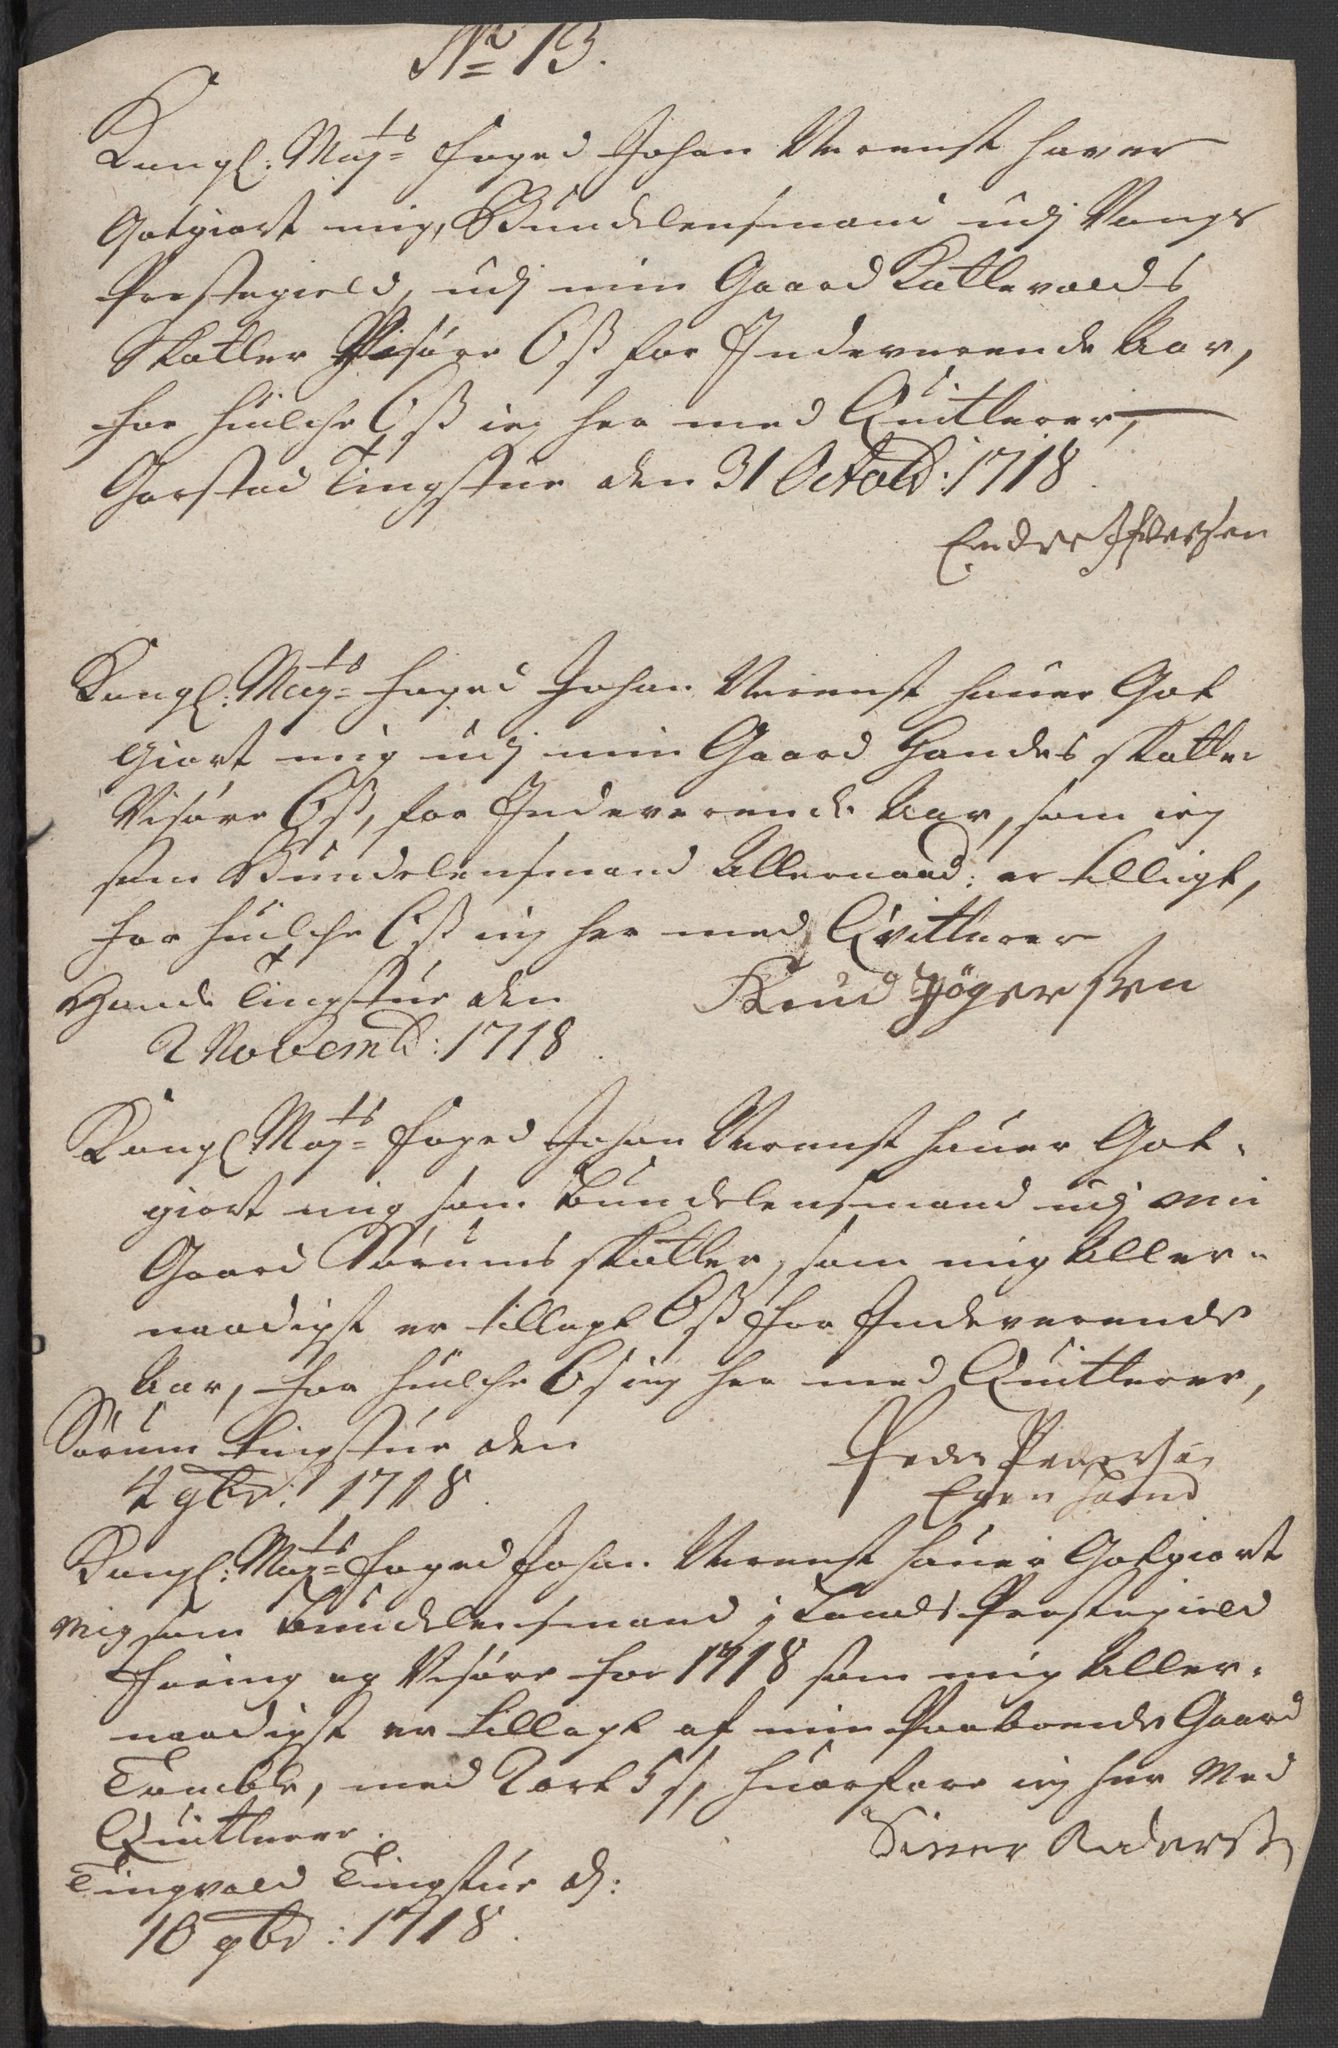 No 13.
Kongl: Majts Foged Johan Verenst haver
Gotgiort mig, Bundelensmand udj Vangs
Præstegield, udj min Gaard Kattevolds
Skatter Visøre Oß for Indeverende Aar,
for huilche Oß ieg her med Quitterer,
Garstad Tingstue den 31 Octobr: 1718.
Endre Iffversen
Kongl: Majts Foged Johan Verenst hauer Got
giort mig udj min Gaard Handes skatter
Visøre Oß, for Indeverende Aar, som ieg
som Bundelensmand Allernaad: er tillagt,
for huilche Oß ieg her med Qvitterer
Hande Tingstue den
2 Novembr: 1718.
Knud Jógersen
Kongl Majts Foged Johan Verenst hauer Got-
giort mig som Bundelensmand udj min
Gaard Sørums skatter, som mig Aller-
naadigst er tillagt Oß for Indeverende
Aar, for huilche Os ieg her med Quitterer,
Sørum Tingstue den
4 9br: 1718.
Peder Pedersen
Egen haand
Kongl: Majts Foged Johan Verenst hauer Gotgiort
Mig som Bundelensmand i Lands Præstegield
Foring og Visøre for 1718 som mig Aller-
naadigst er tillagt af min Paaboende Gaard
Tomble, med 2 ort 5 s, huorfore ieg her Med
Quitterer.
Tingvold Tingstue d:
10 9br: 1718.
Siver Anders S